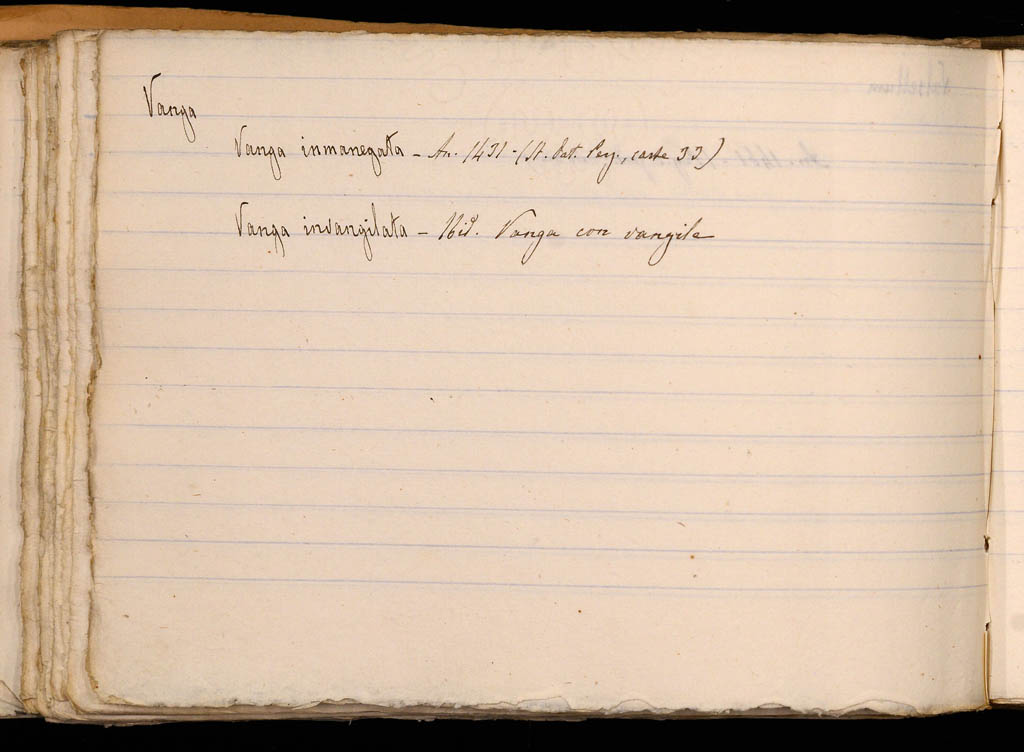 Vanga
Vanga inmanegata - An. 1431 - (St. Dat. Perg., carte 33)
Vanga invangilata - Ibid. Vanga con vangile